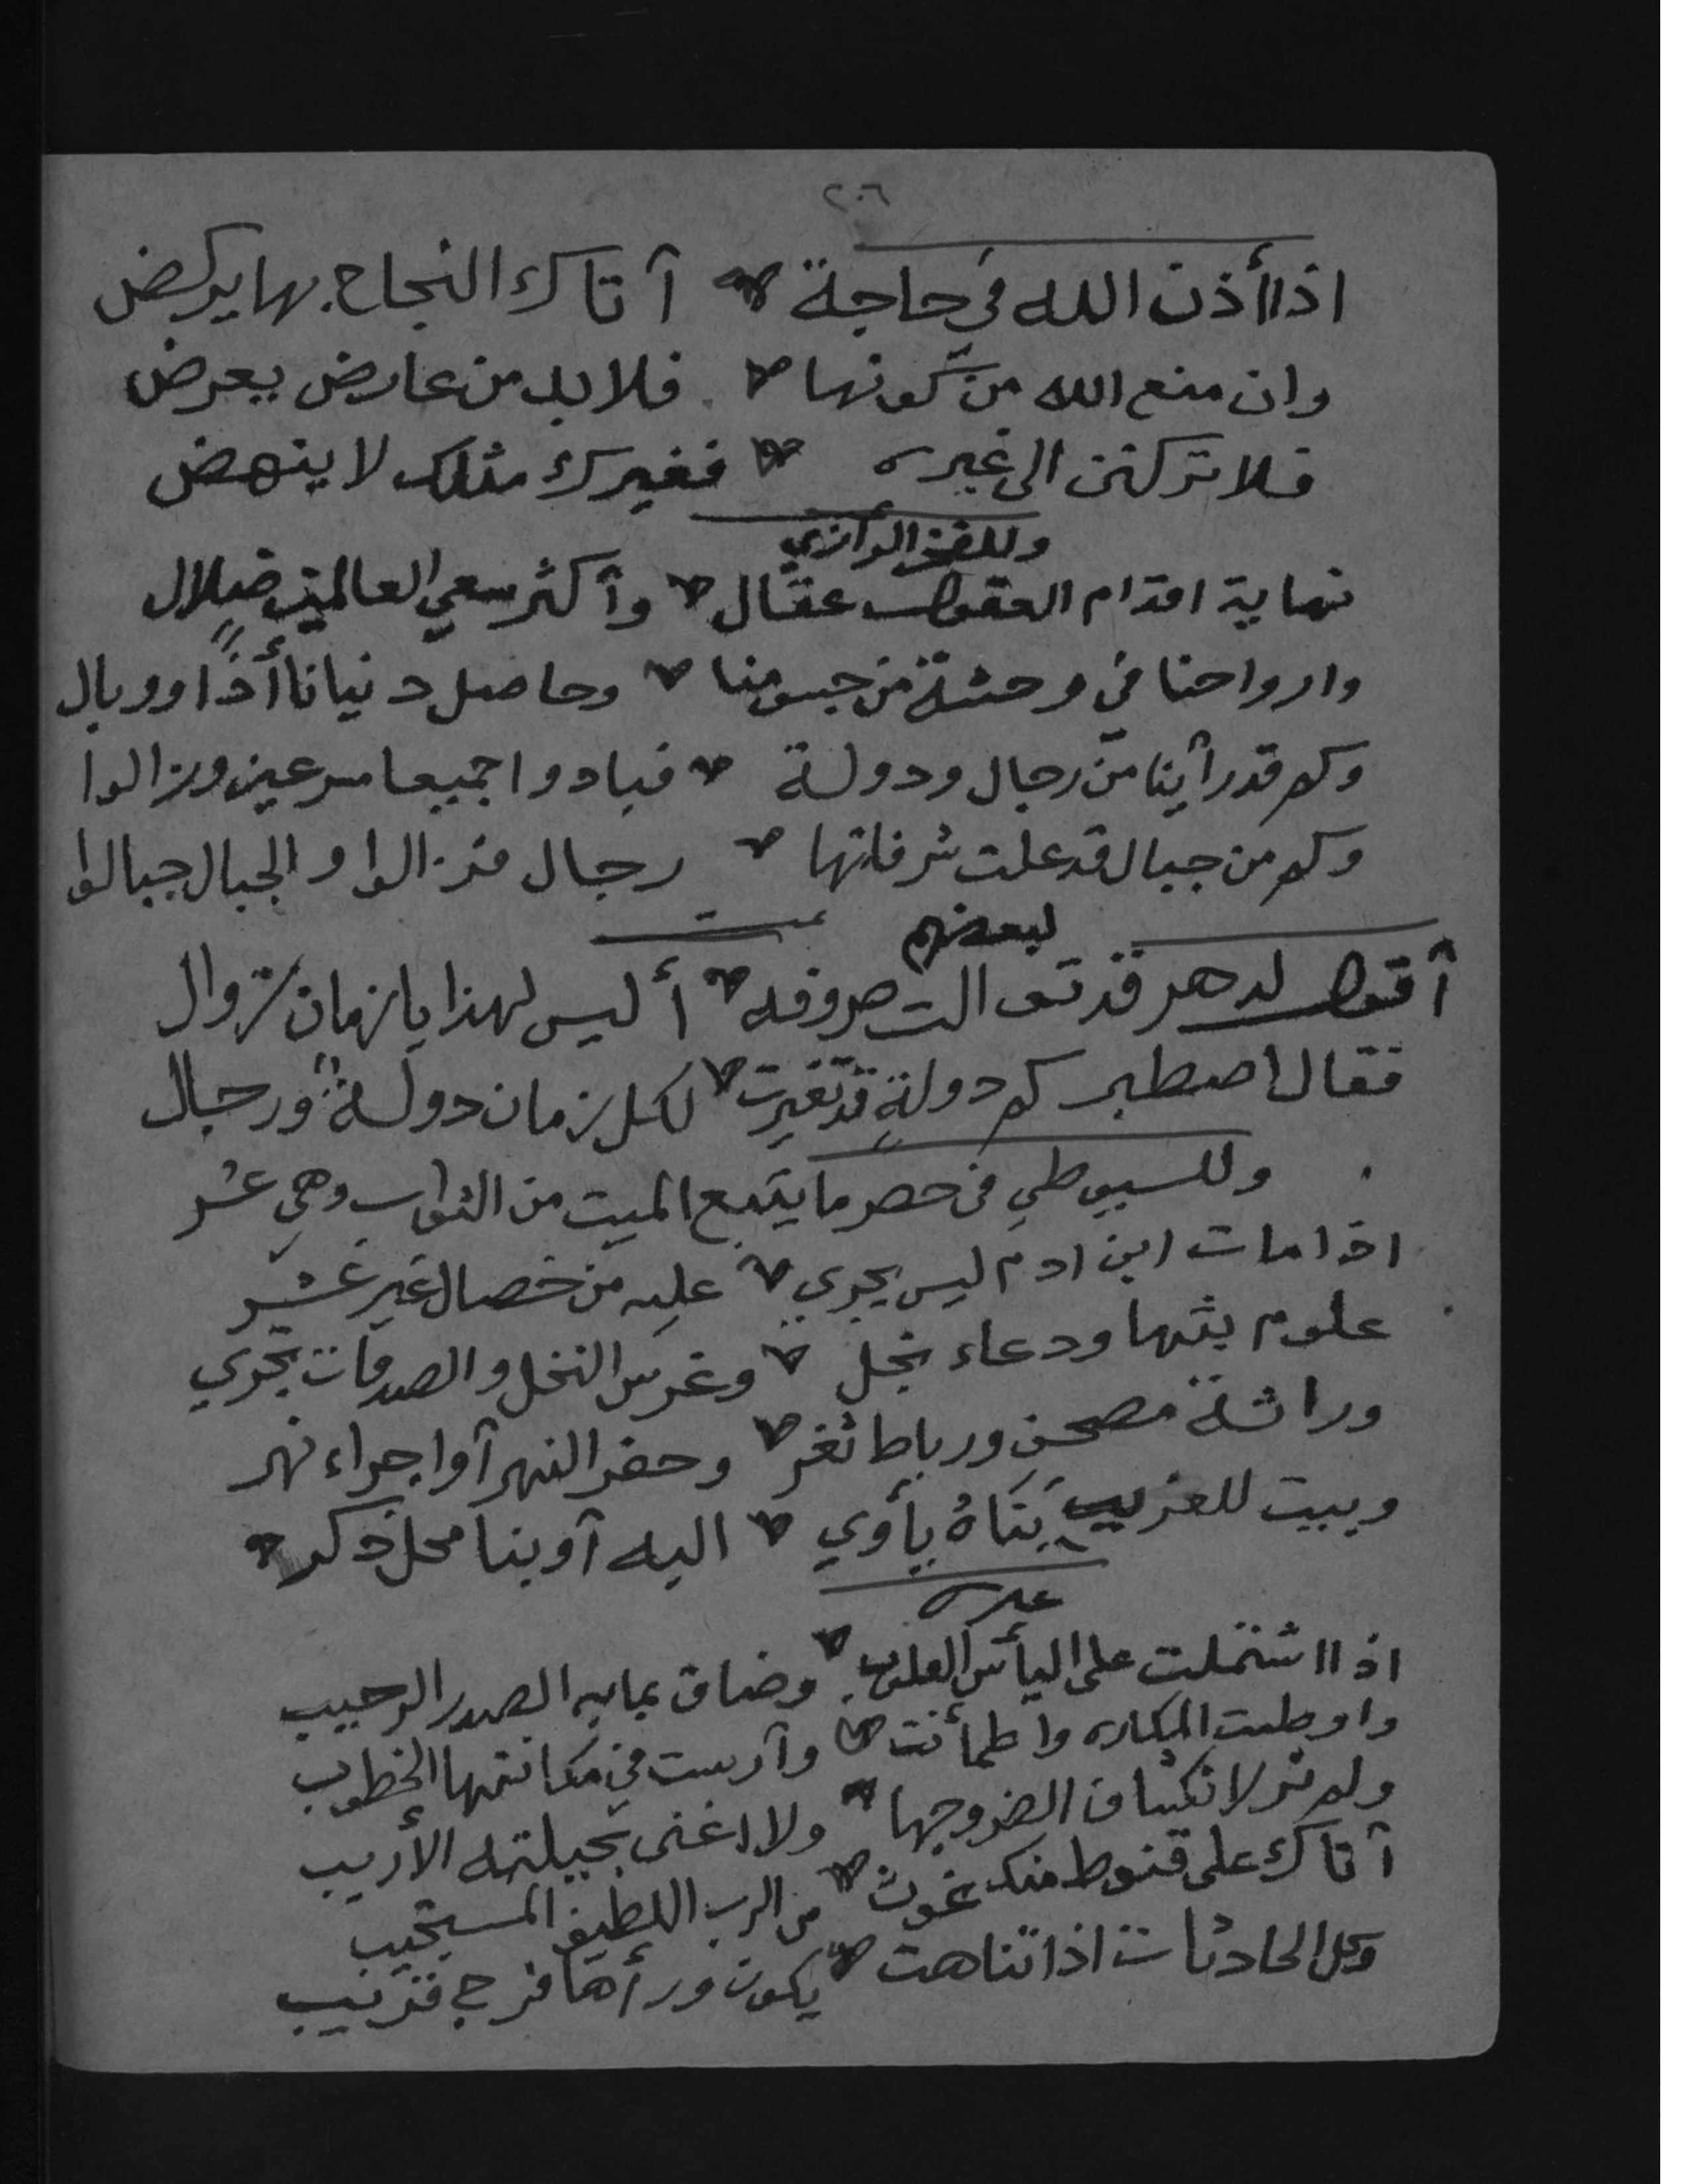 ٢٠٦
اذا أذن الله في حاجة * آتاك النجاح بها يركض
وان منع الله من كونها * فلا بد من عارض يعرض
فلا تركنن الى غيره * فغيرك مثلك لا ينهض
وللفخر الرازي
نهاية اقدام العقول عقال * وأكثر سعي العالمين ضلال
وارواحنا في وحشة من جسومنا * وحاصل دنيانا أذًا ووبال
وكم قد رأينا من رجال ودولة * فبادوا جميعا مسرعين وزالوا
وكم من جبال قد علت شرفاتها * رجال فزالوا والجبال جبالوا
تمت
لبعضهم
أقول لدهر قد توالت صروفه * أليس لهذا يا زمان زوال
فقال اصطبر كم دولةٍ قد تغيرت * لكل زمان دولةٌ ورجال
وللسيوطي في حصر ما يتبع الميت من الثواب وهي عشر
اذا مات ابن ادم ليس يجري * عليه من خصال غير عشر
علوم بثها ودعاء نجل * وغرس النخل والصدقات تجري
وراثة مصحف ورباط ثغر * وحفر النهر آو اجراء نهر
وبيت للغريب بَنَاهُ يأوي * اليه آو بنا محل ذكر *
غيره
اذا اشتملت على اليأس القلوب * وضاق بما به الصدر الرحيب
واوطنت المكاره واطمأنت * وآرست في مكانتها الخطوب
ولم تر لانكشاف الضر وجها * ولا اغنى بحيلته الأريب
آتاك على قنوط منك غوث * من الرب اللطيف المستجيب
وكل الحادثات اذا تناهت * يكون ورأها فرج قريب